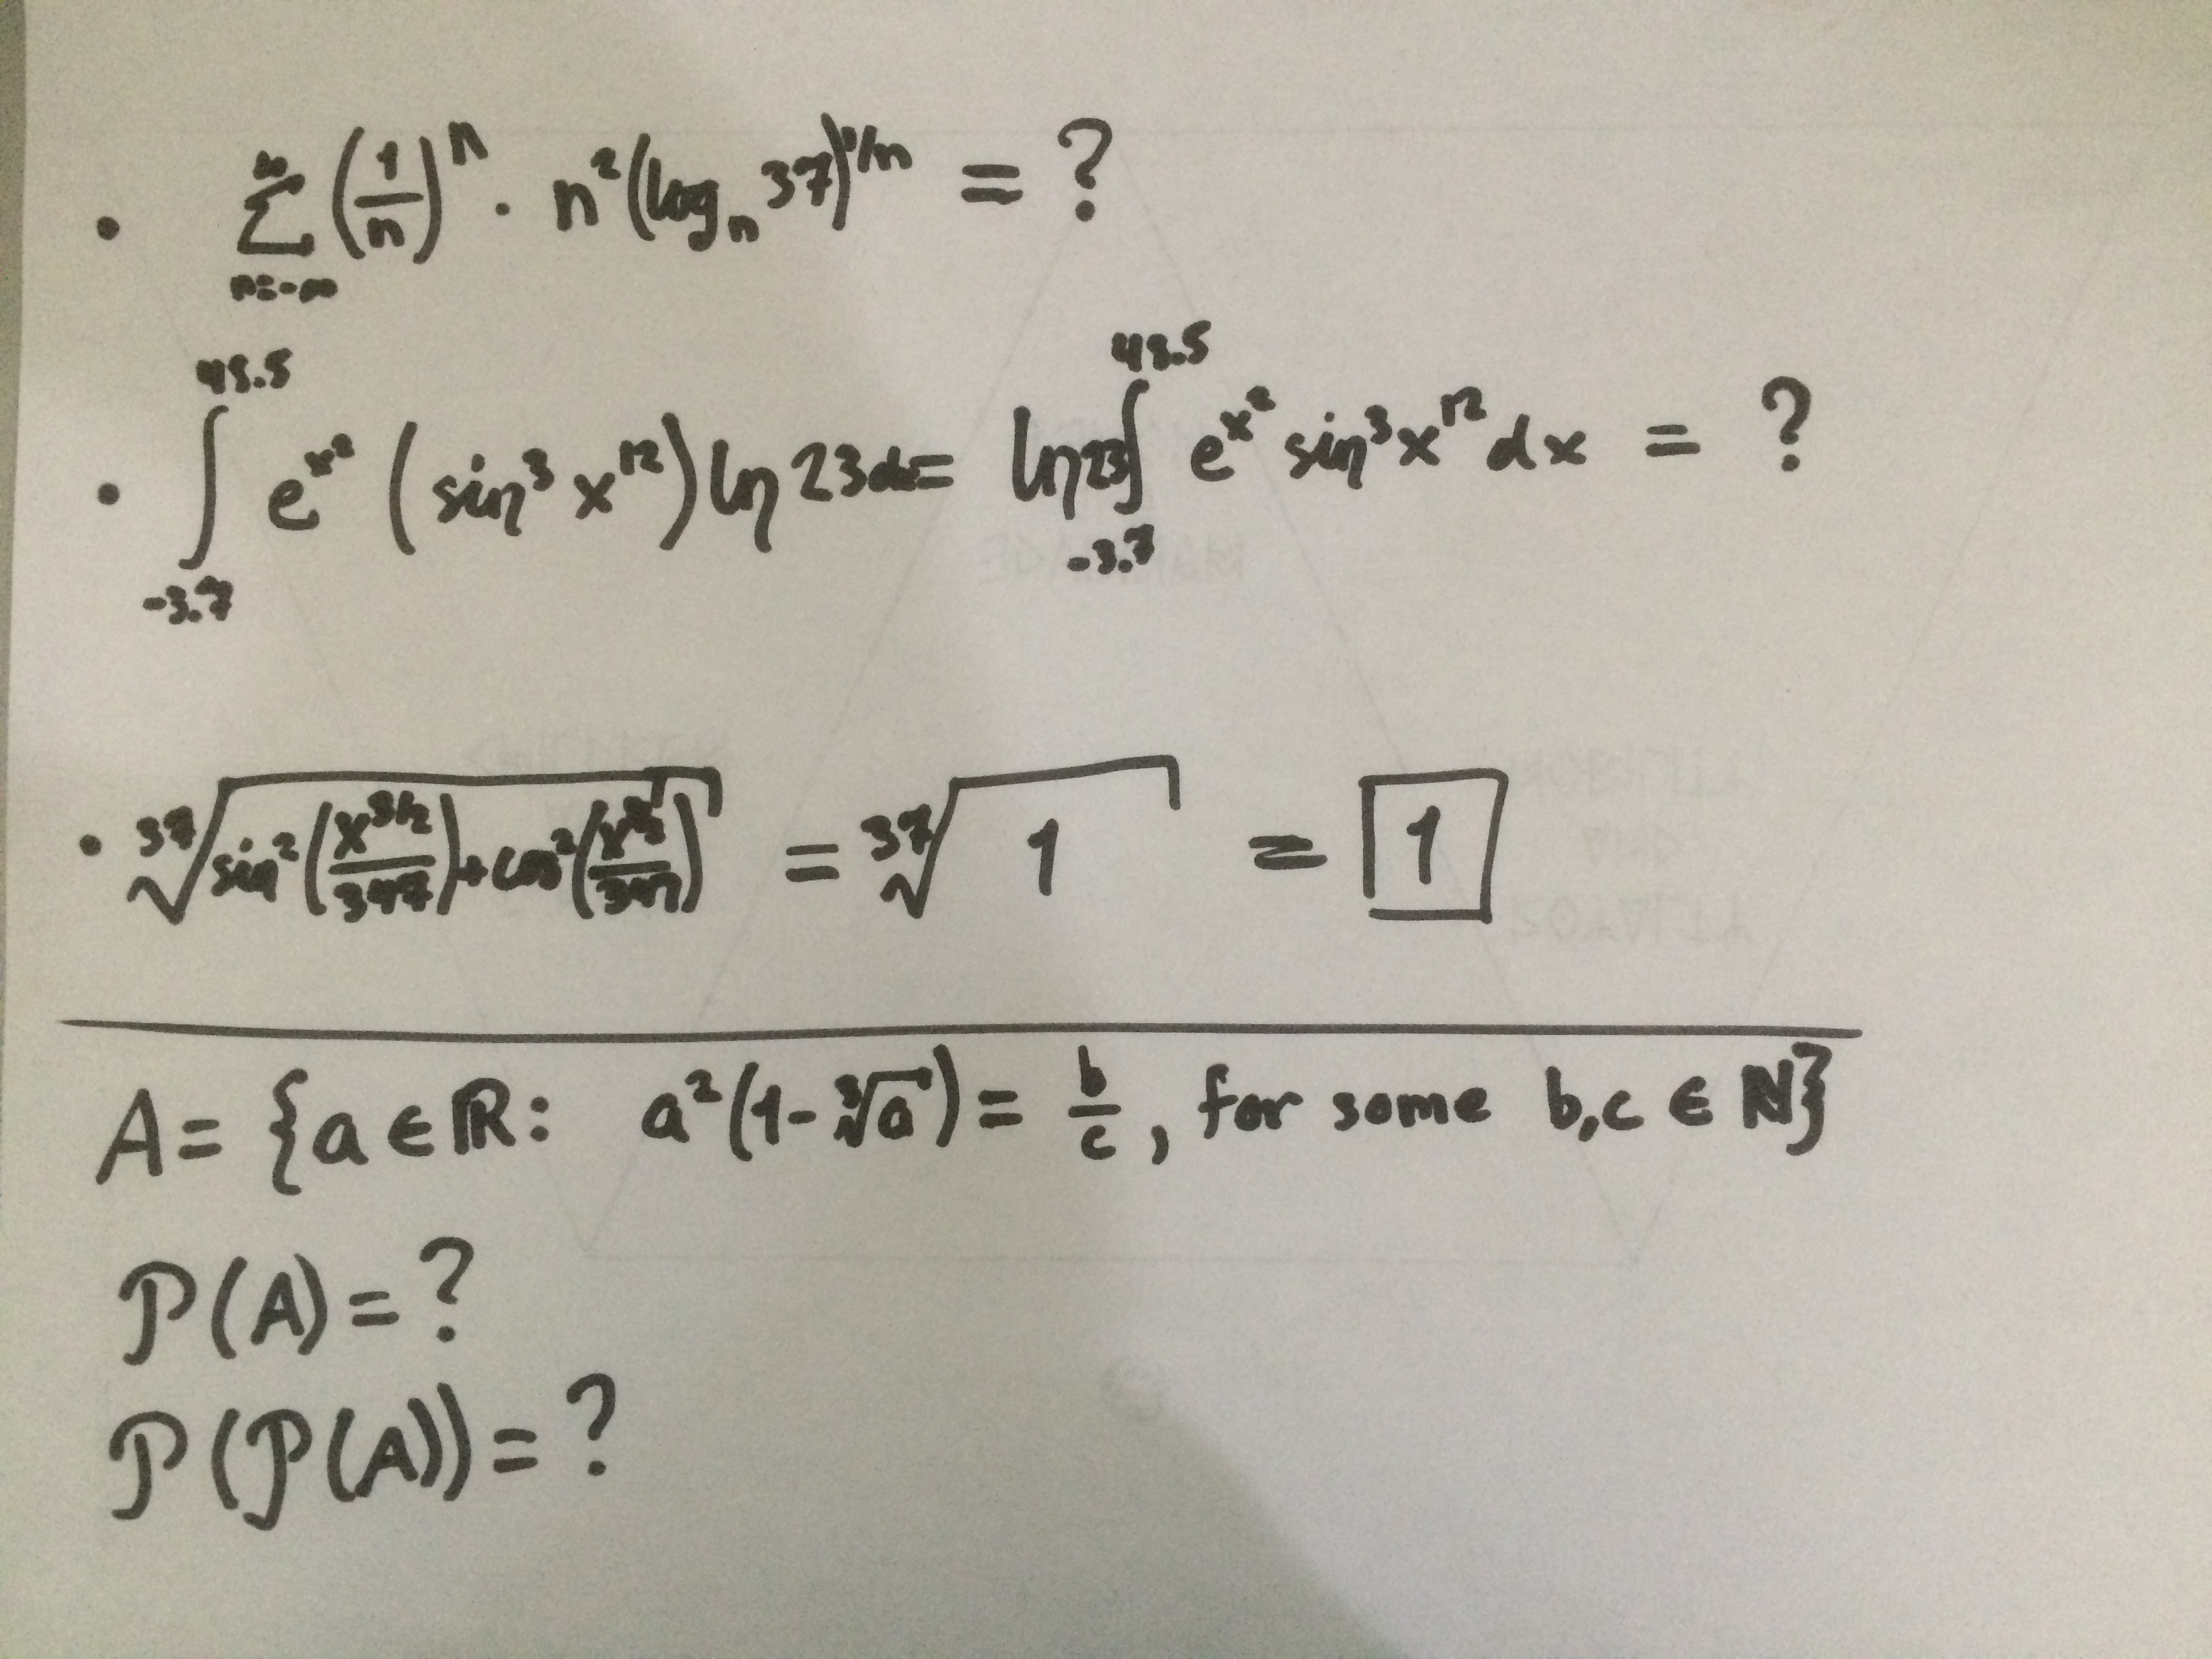 • ∑ₙ₌₋∞ (1/n)ⁿ · n²(logₙ 37)^(1/n) = ?
• ∫₋₃.₇ e^(x²) (sin³ x¹²) ln 23 dx = ln 23 ∫₋₃.₇ e^(x²) sin³ x¹² dx = ?
• ³⁷√(sin²(x^(3/2)/347) + cos²(x^(3/2)/347)) = ³⁷√1 = 1
A = {a ∈ ℝ: a²(1-³√a) = b/c, for some b,c ∈ ℕ}
P(A) = ?
P(P(A)) = ?